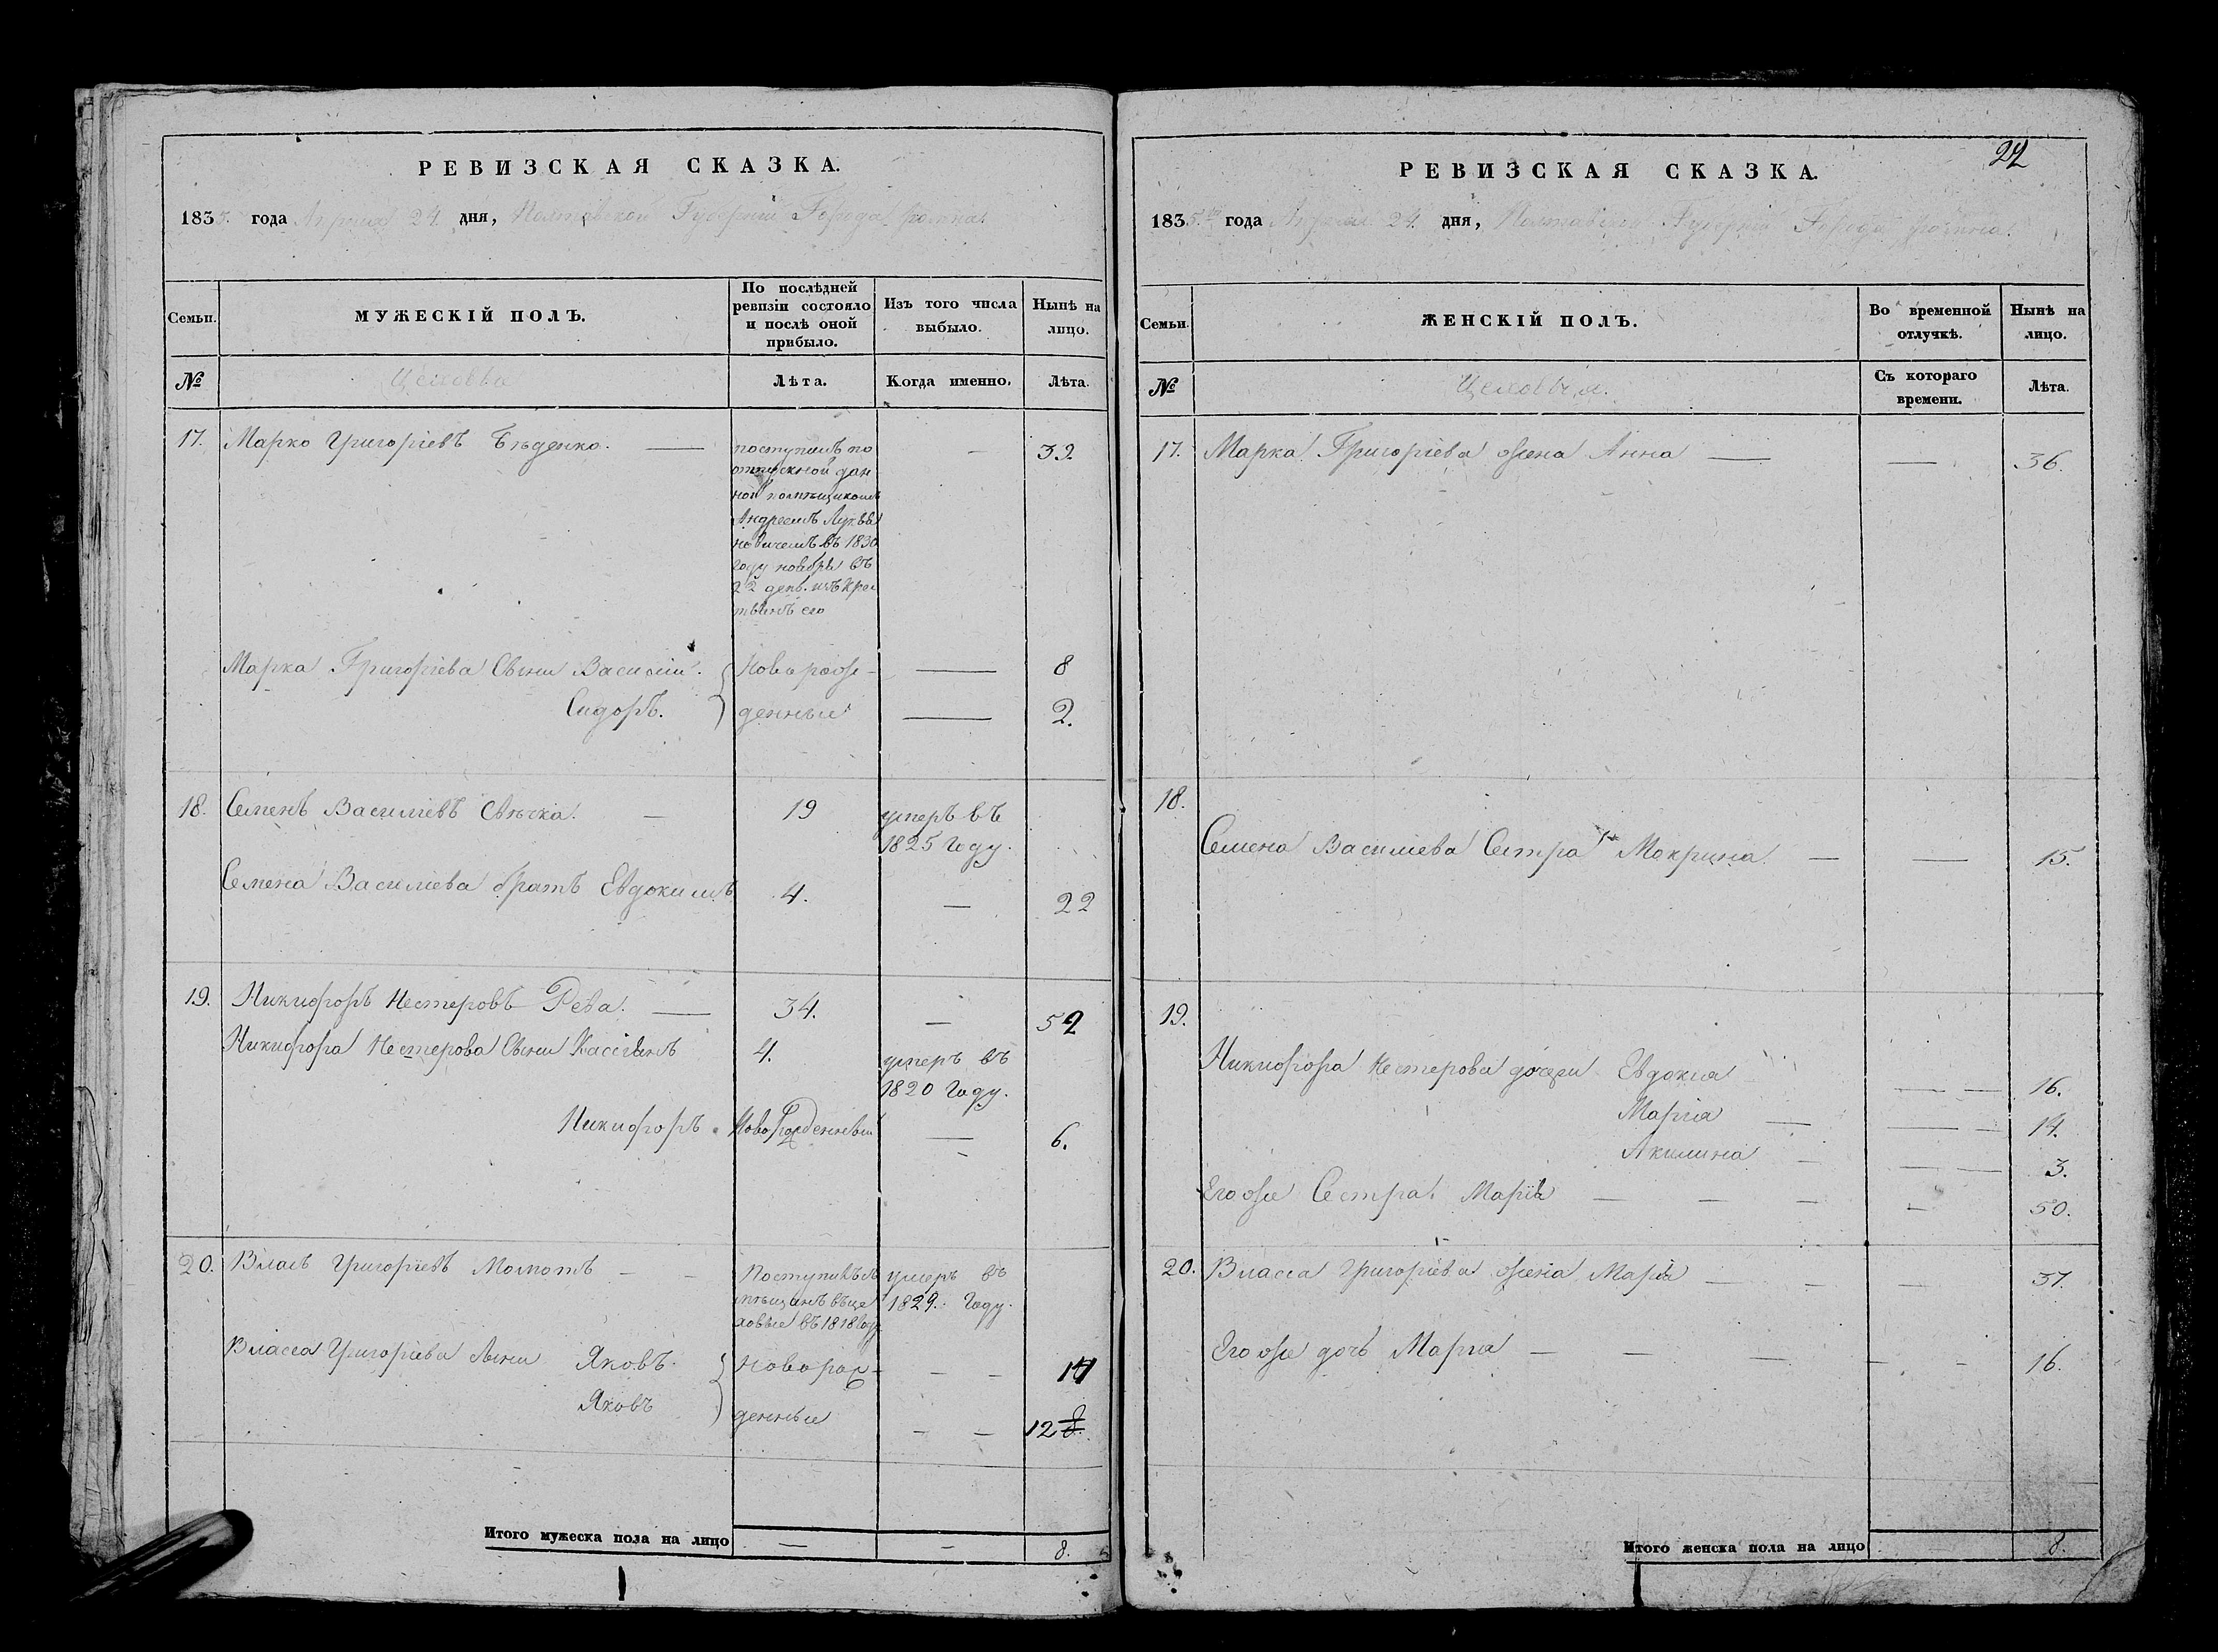 РЕВИЗСКАЯ СКАЗКА.
1835. года Апреля 24 дня, Полтавской Губернии Города Ромна.
Семьи.
МУЖЕСКІЙ ПОЛЪ.
По послѣдней
ревизіи состояло
и послѣ оной
прибыло.
Изъ того числа
выбыло.
Нынѣ на
лицо.
№
Цеховые
Лѣта.
Когда именно.
Лѣта.
17. Марко Григоріевъ Бѣденко. — 39.
поступилъ по
отпускной дан
ной помѣщикомъ
Андреемъ
въ 1830
году ноября въ
день изъ крес
тьянъ его
Марка Григоріева Сыны Василій. Новорож- — 8
Сидоръ. денные — 2.
18. Семенъ Василіевъ Свѣчка. — 19 умеръ въ
1825 Году.
Семена Василіева братъ Евдокимъ 4. — 22
19. Никифоръ Нестеровъ Рева. — 34. — 52
Никифора Нестерова Сыны Кассіянъ 4. умеръ въ
1820 Году.
Никифоръ Новорожденный — 6.
20. Власъ Григоріевъ Момотъ — — Поступилъ изъ умеръ въ
мѣщанъ въ це 1829. Году.
ховые въ 1818 году
Власса Григоріева сыны Яковъ. новорож- — — 14
Яковъ денные — — 12 8.
Итого мужеска пола на лицо — — 8.
24
РЕВИЗСКАЯ СКАЗКА.
1835. года Апреля 24. дня, Полтавской Губерніи Города Ромна.
Семьи.
ЖЕНСКІЙ ПОЛЪ.
Во временной
отлучкѣ.
Нынѣ на
лицо.
№
Цеховыя.
Съ котораго
времени.
Лѣта.
17. Марка Григоріева жена Анна — — 36.
18.
Семена Василіева Сестра Мокрина — — 15.
19.
Никифора Нестерова дочери Евдокія — — 16.
Марія — — — 14.
Акилина — — — 3.
Его же Сестра Марія — — — — 50.
20. Власса Григоріева жена Марія — — — 37.
Его же дочь Марія — — — — — 16.
Итого женска пола на лицо 8.